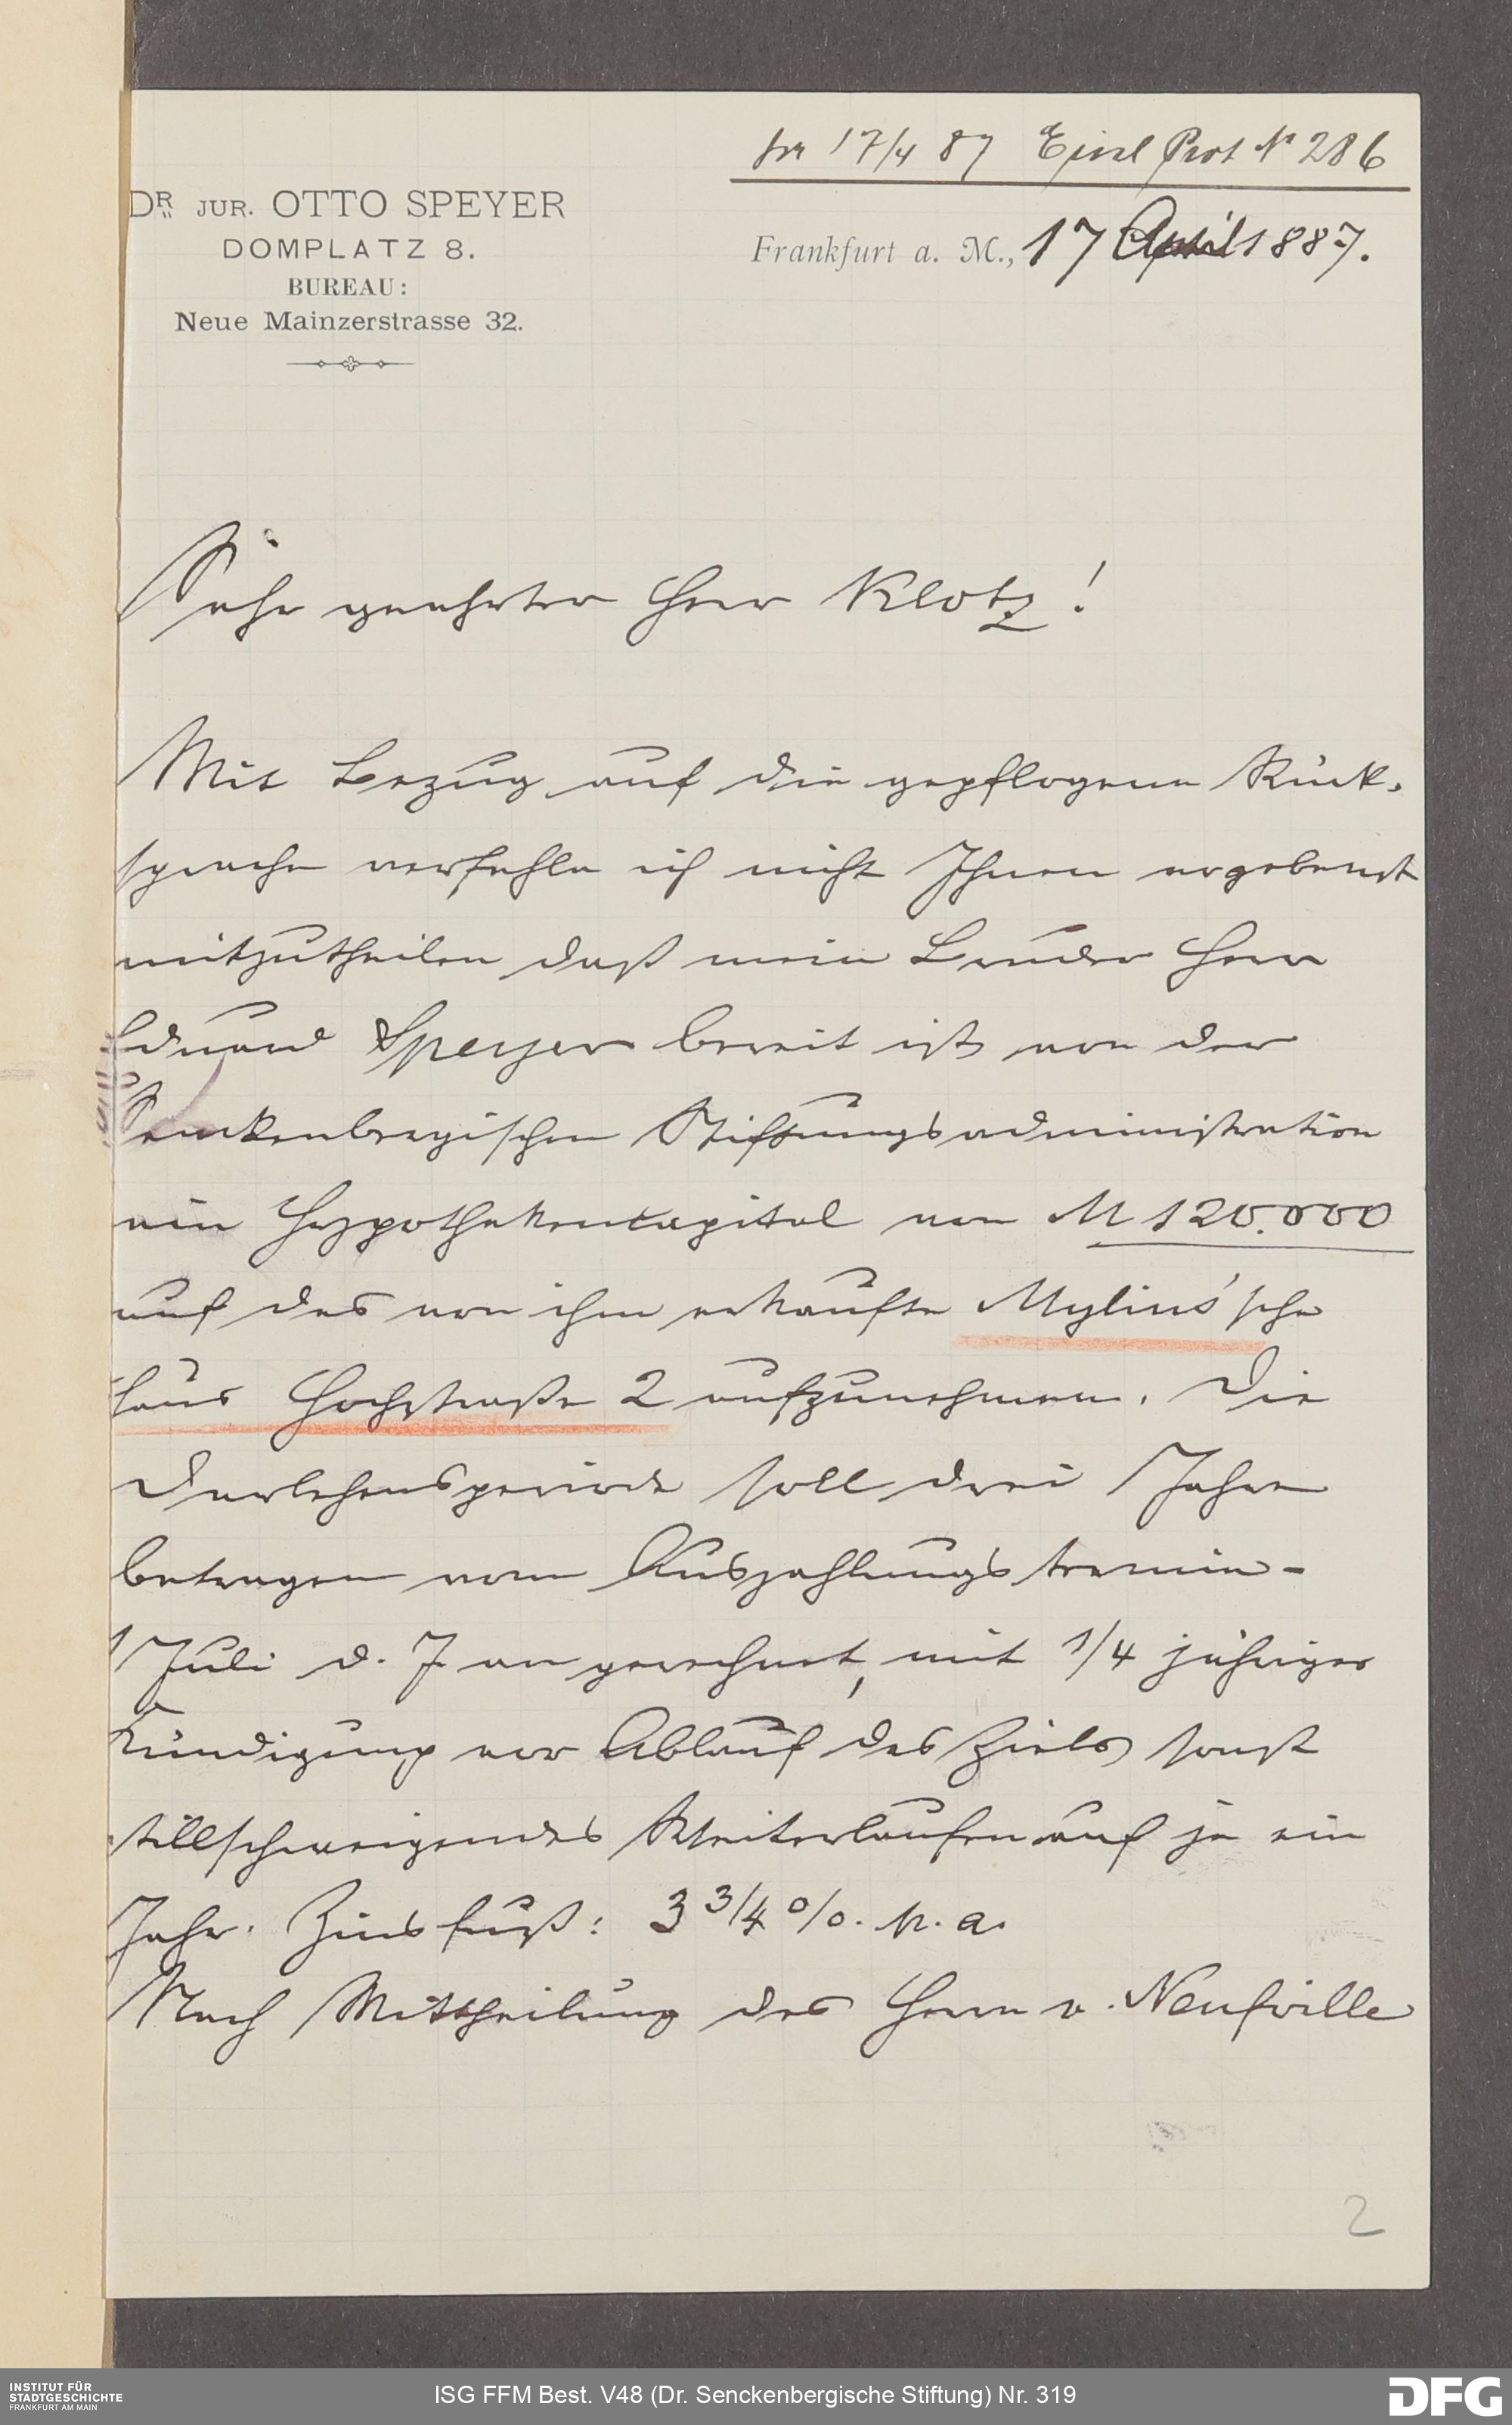 pr 17/4 87 Einl Prot No 286
DR. JUR. OTTO SPEYER
DOMPLATZ 8.
BUREAU:
Neue Mainzerstrasse 32.
Frankfurt a. M., 17 April 1887.
Sehr geehrter Herr Klotz!
Mit Bezug auf die gepflogene Rück-
sprache verfehle ich nicht Ihnen ergebenst
mitzutheilen daß mein Bruder Herr
Eduard Speyer bereit ist von der
Senckenbergischen Stiftungsadministration
ein Hypothekencapital von M 120.000
auf das von ihm erkaufte Mylius'sche
Haus Hochstraße 2 aufzunehmen. Die
Darlehensperiode soll drei Jahre
betragen vom Auszahlungstermin -
1 Juli d. J. an gerechnet, mit 1/4 jähriger
Kündigung vor Ablauf des Ziels sonst
stillschweigendes Weiterlaufen auf je ein
Jahr. Zinsfuß: 3 3/4 %. p. a.
Nach Mittheilung des Herrn v. Neufville
2
INSTITUT FÜR
STADTGESCHICHTE
FRANKFURT AM MAIN
ISG FFM Best. V48 (Dr. Senckenbergische Stiftung) Nr. 319
DFG